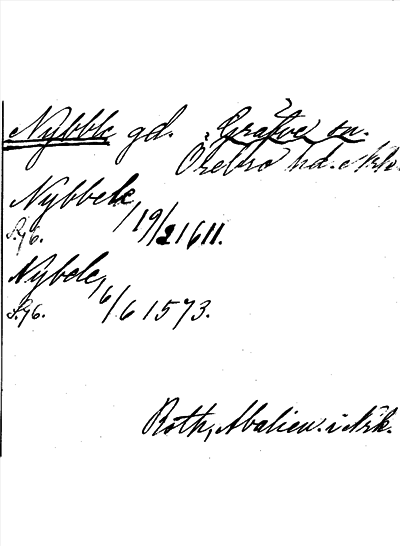 Nybble gd. Gräfve sn.
Örebro hd. Nrk.
Nybbele, 19/2 1611.
S. 76.
Nybele, 6/6 1573.
S. 76.
Roth, i Nrk.